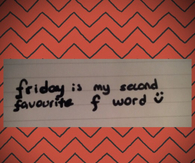 friday is my second
favourite f word ü